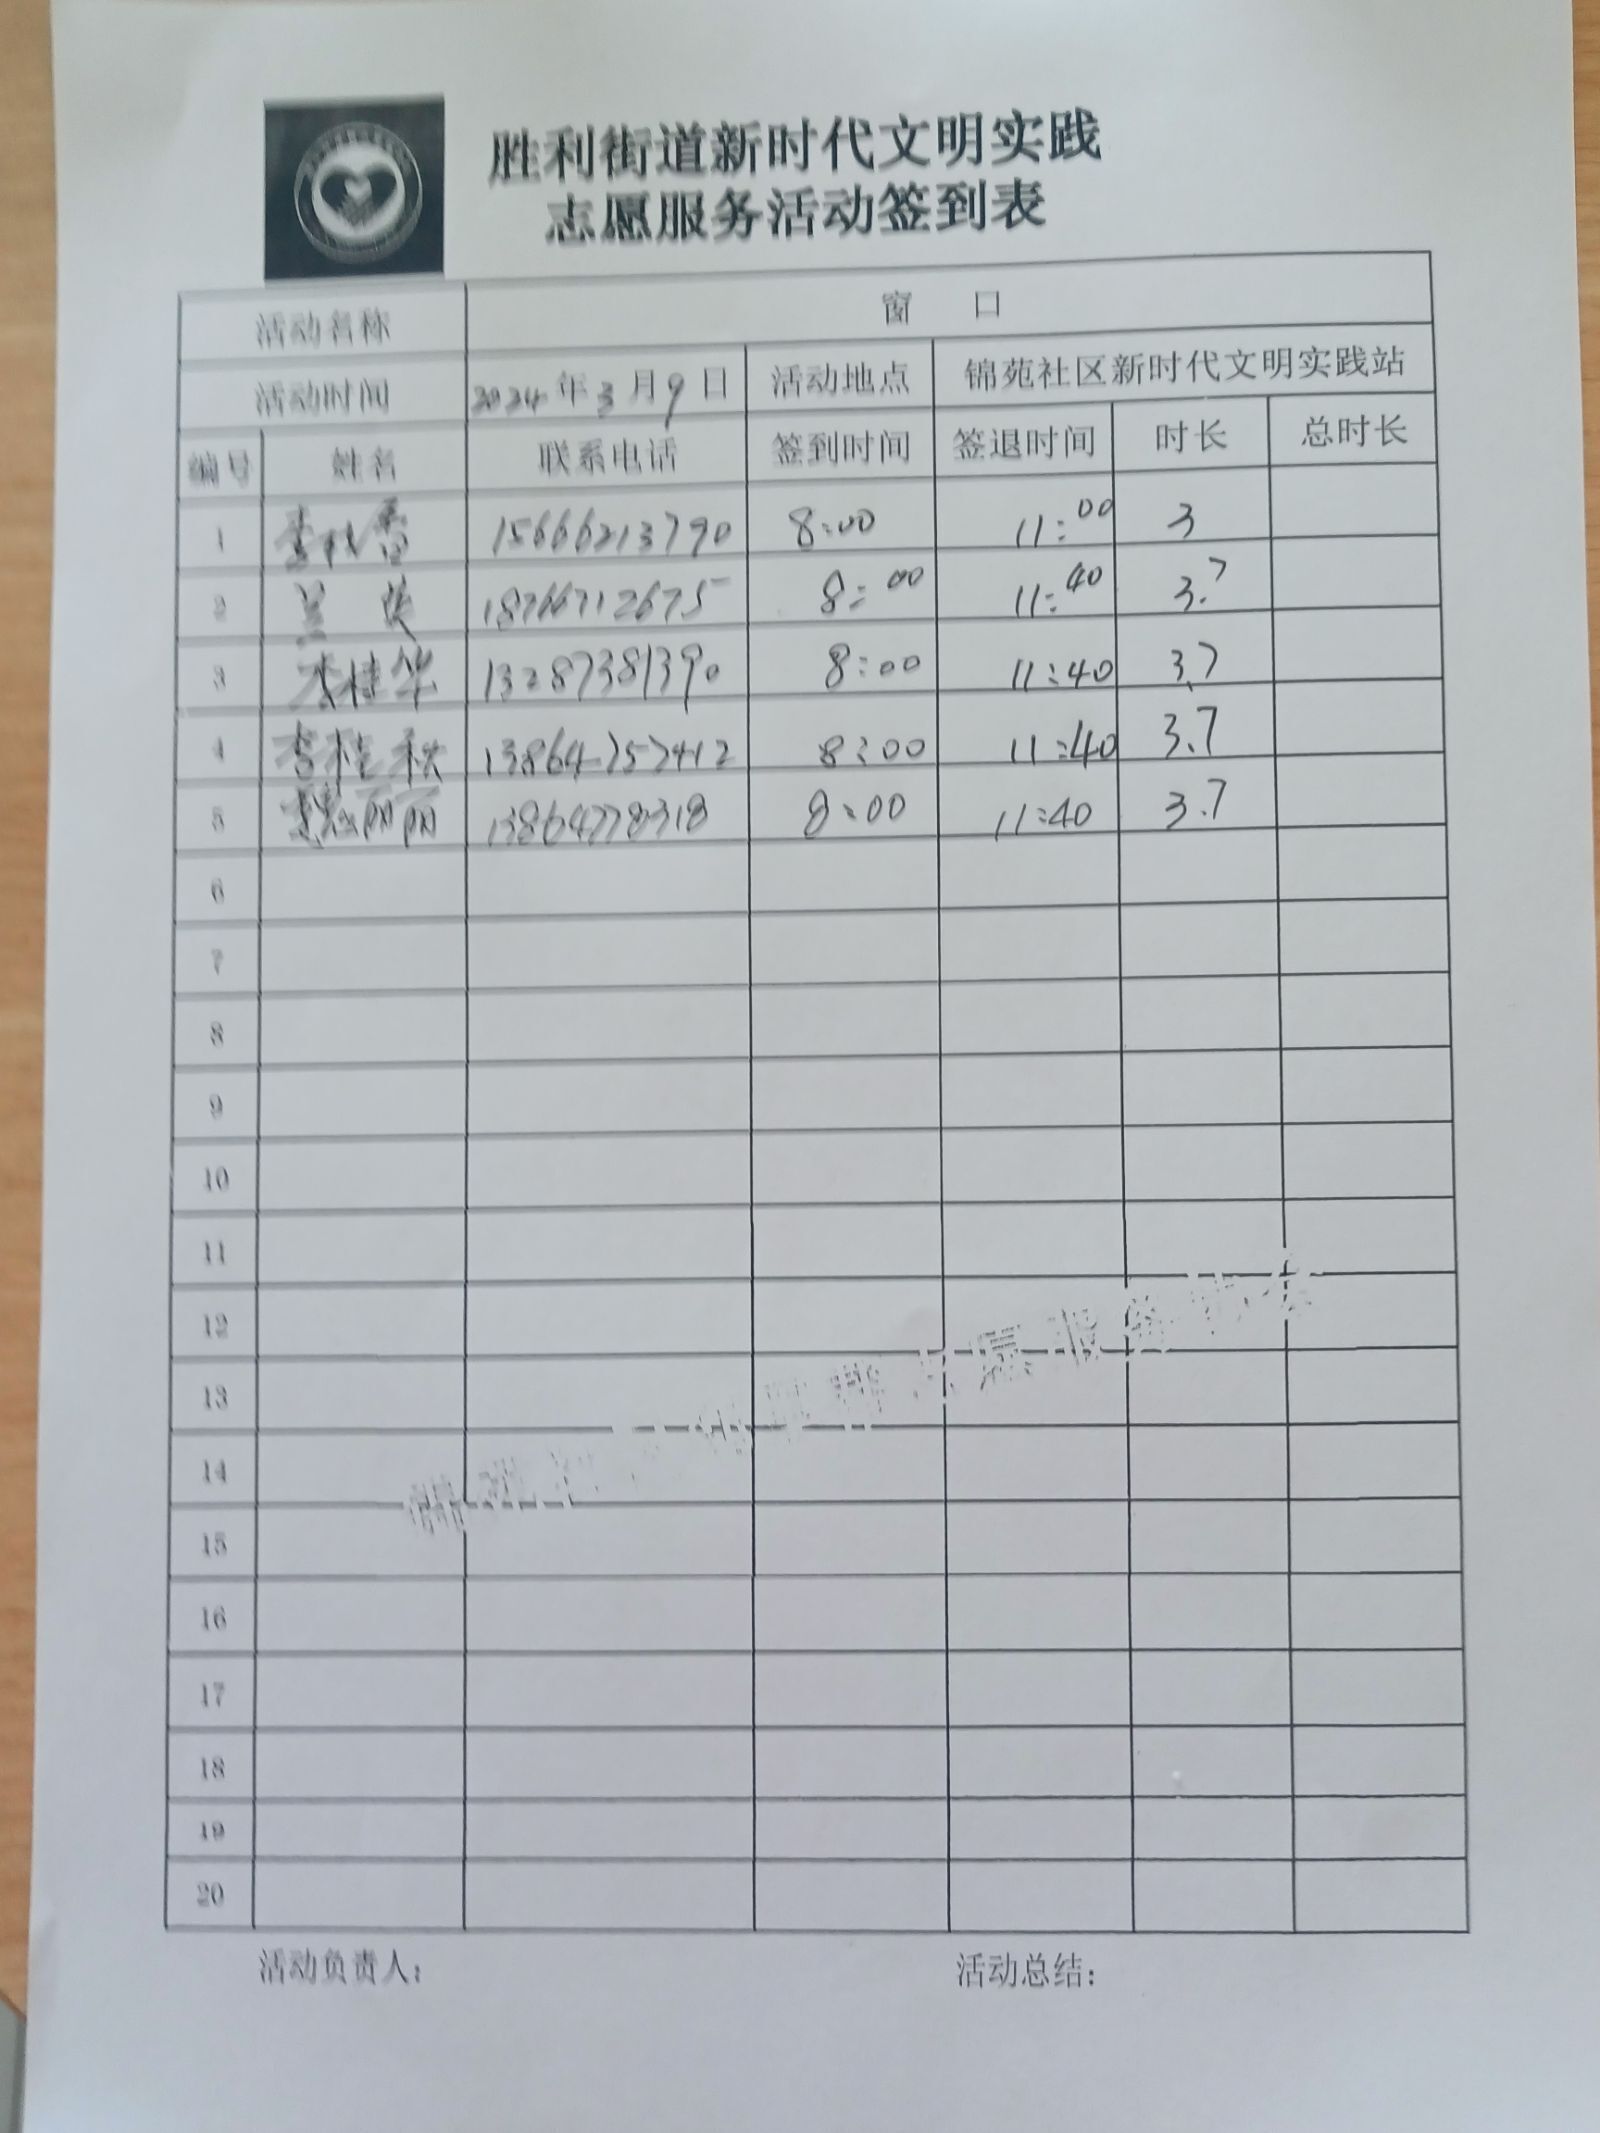 胜利街道新时代文明实践
志愿服务活动签到表
活动名称 窗 口
活动时间 2024年3月9日 活动地点 锦苑社区新时代文明实践站
编号 姓名 联系电话 签到时间 签退时间 时长 总时长
1 李桂香 15666213790 8:00 11:00 3
2 兰英 18766712675 8:00 11:40 3.7
3 李桂华 13287381390 8:00 11:40 3.7
4 李桂秋 13864757412 8:00 11:40 3.7
5 丽丽 13864778318 8:00 11:40 3.7
6
7
8
9
10
11
12
13
14
15
16
17
18
19
20
活动负责人: 活动总结: